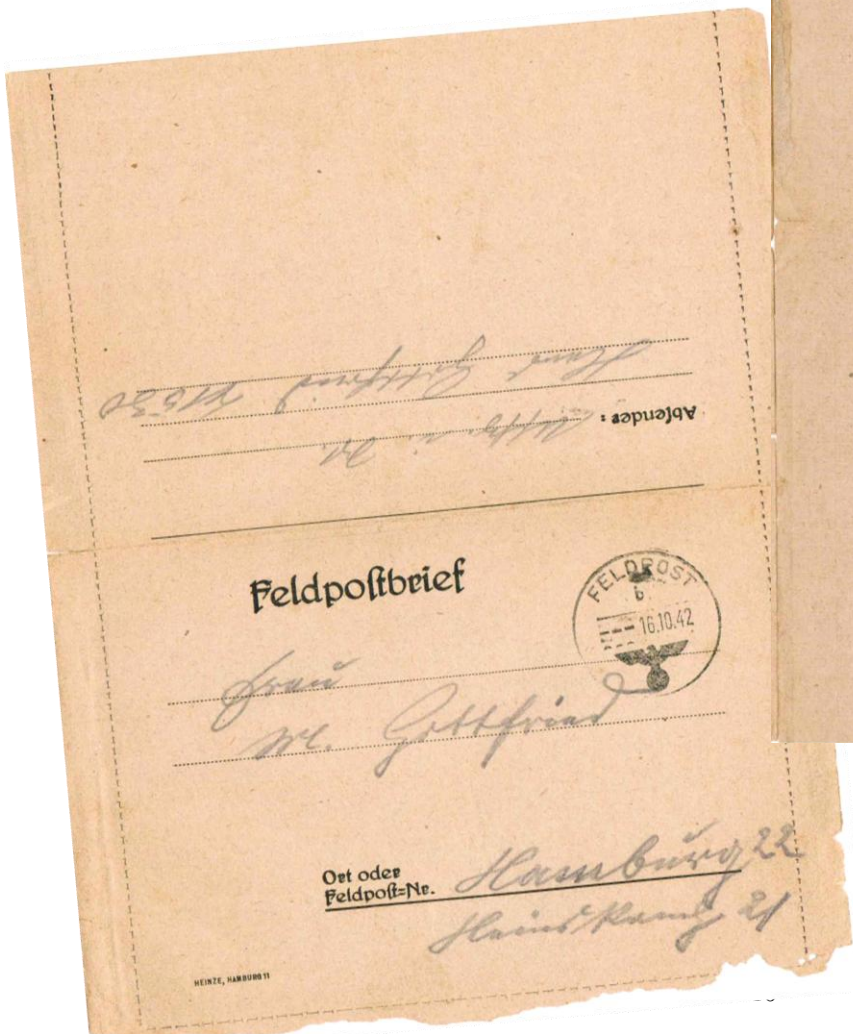 Absender:
Gottfried
Feldpostbrief
FELDPOST
b
16.10.42
Frau
M. Gottfried
Ort oder
Feldpost=Nr. Hamburg 22.
Heinskamp 21
HEINZE, HAMBURG 11